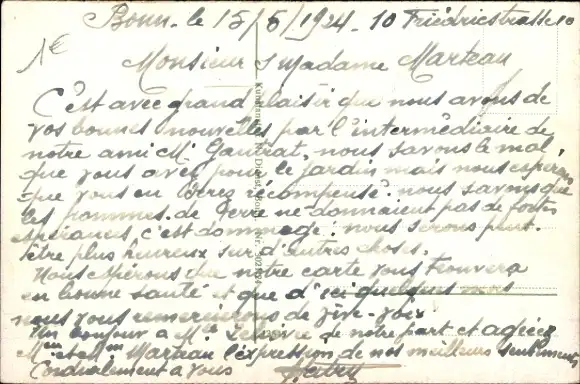 Bonn. le 15/5/1924. 10 Friedrichstrasse 10
1€
Monsieur & Madame Marteau
C'est avec grand plaisir que nous avons de
vos bonnes nouvelles par l'intermédiaire de
notre ami M. nous savons le mal
que vous avez pour le jardin mais nous esperons
que vous en serez récompensé. nous savons que
les pommes de terre ne donnaient pas de fortes
espérances, c'est dommage. nous serons peut
être plus heureux sur d'autres choses.
Nous espérons que notre carte vous trouvera
en bonne santé et que d'ici quelques mois
nous vous remercierons de vive-voix
Un bonjour a Mlle de notre part et agréez
Mme et Marteau l'expression de nos meilleurs sentiments
Cordialement a vous